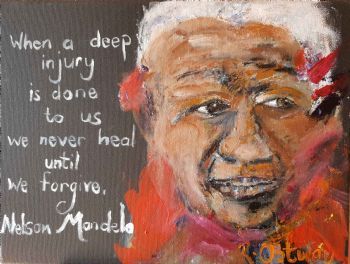 When a deep
injury
is done
to us
we never heal
until
we forgive.
Nelson Mandela